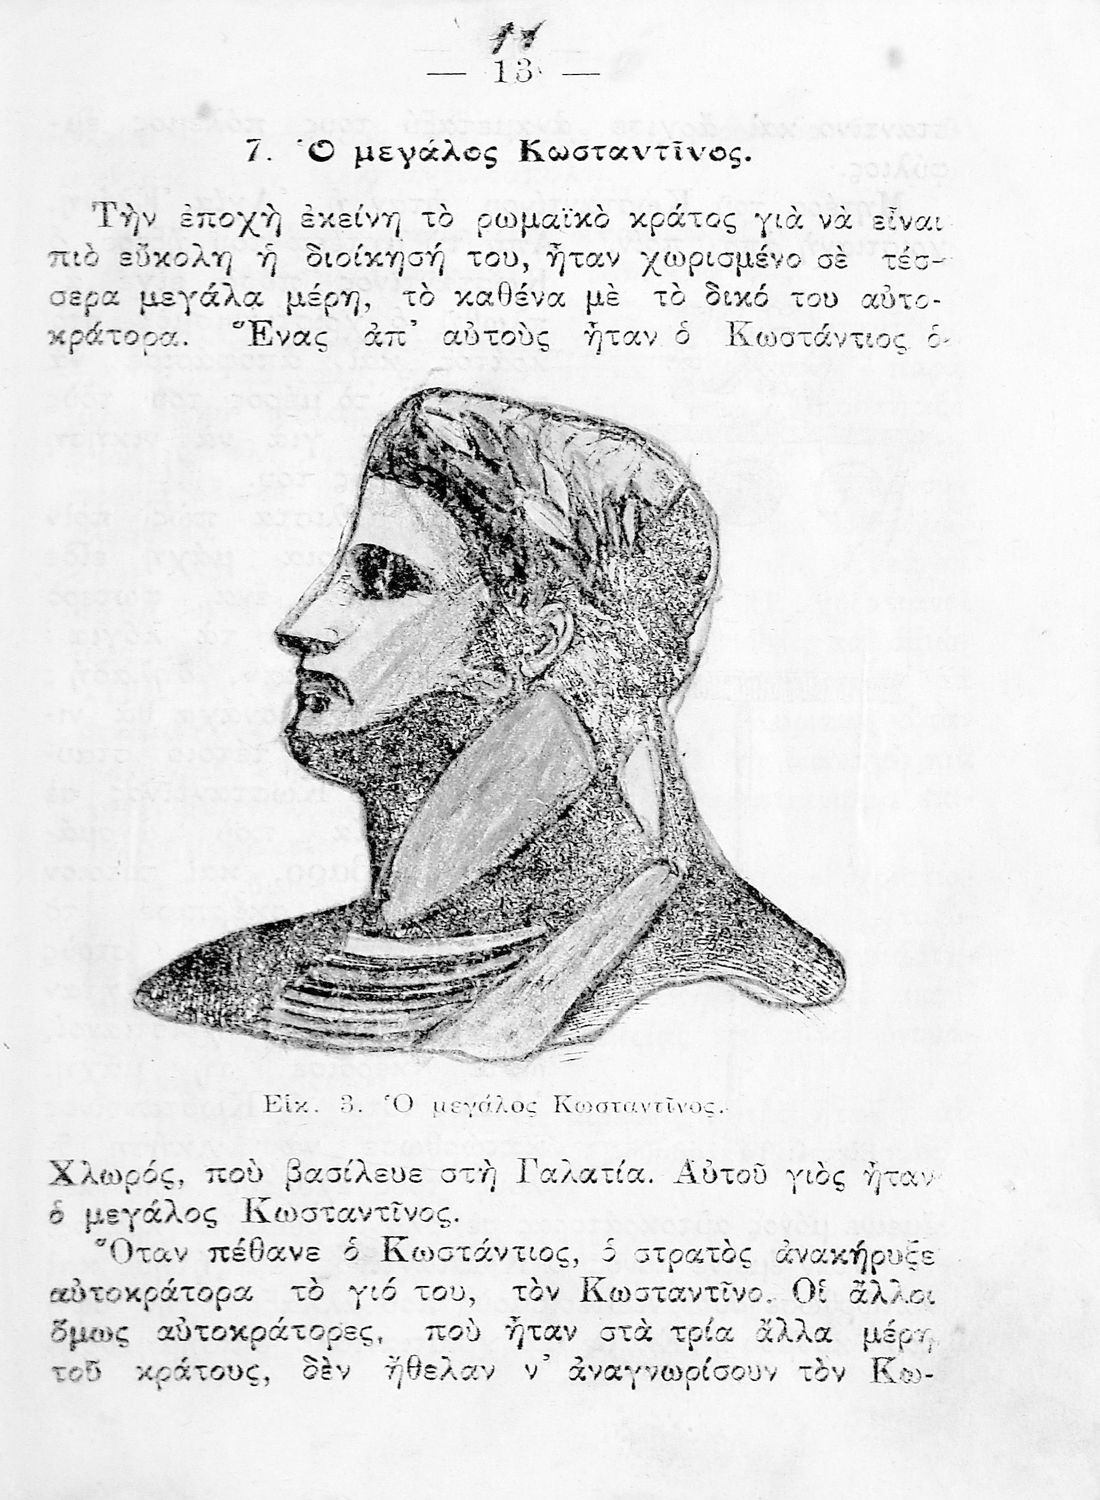 — 13 —
7. Ὁ μεγάλος Κωσταντῖνος.
Τὴν ἐποχὴ ἐκείνη τὸ ρωμαϊκὸ κράτος γιὰ νὰ εἶναι
πιὸ εὔκολη ἡ διοίκησή του, ἦταν χωρισμένο σὲ τέσ-
σερα μεγάλα μέρη, τὸ καθένα μὲ τὸ δικό του αὐτο-
κράτορα. Ἕνας ἀπ' αὐτοὺς ἦταν ὁ Κωστάντιος ὁ
Εἰκ. 3. Ὁ μεγάλος Κωσταντῖνος.
Χλωρός, ποὺ βασίλευε στὴ Γαλατία. Αὐτοῦ γιὸς ἦταν
ὁ μεγάλος Κωσταντῖνος.
Ὅταν πέθανε ὁ Κωστάντιος, ὁ στρατὸς ἀνακήρυξε
αὐτοκράτορα τὸ γιό του, τὸν Κωσταντῖνο. Οἱ ἄλλοι
ὅμως αὐτοκράτορες, ποὺ ἦταν στὰ τρία ἄλλα μέρη
τοῦ κράτους, δὲν ἤθελαν ν' ἀναγνωρίσουν τὸν Κω-